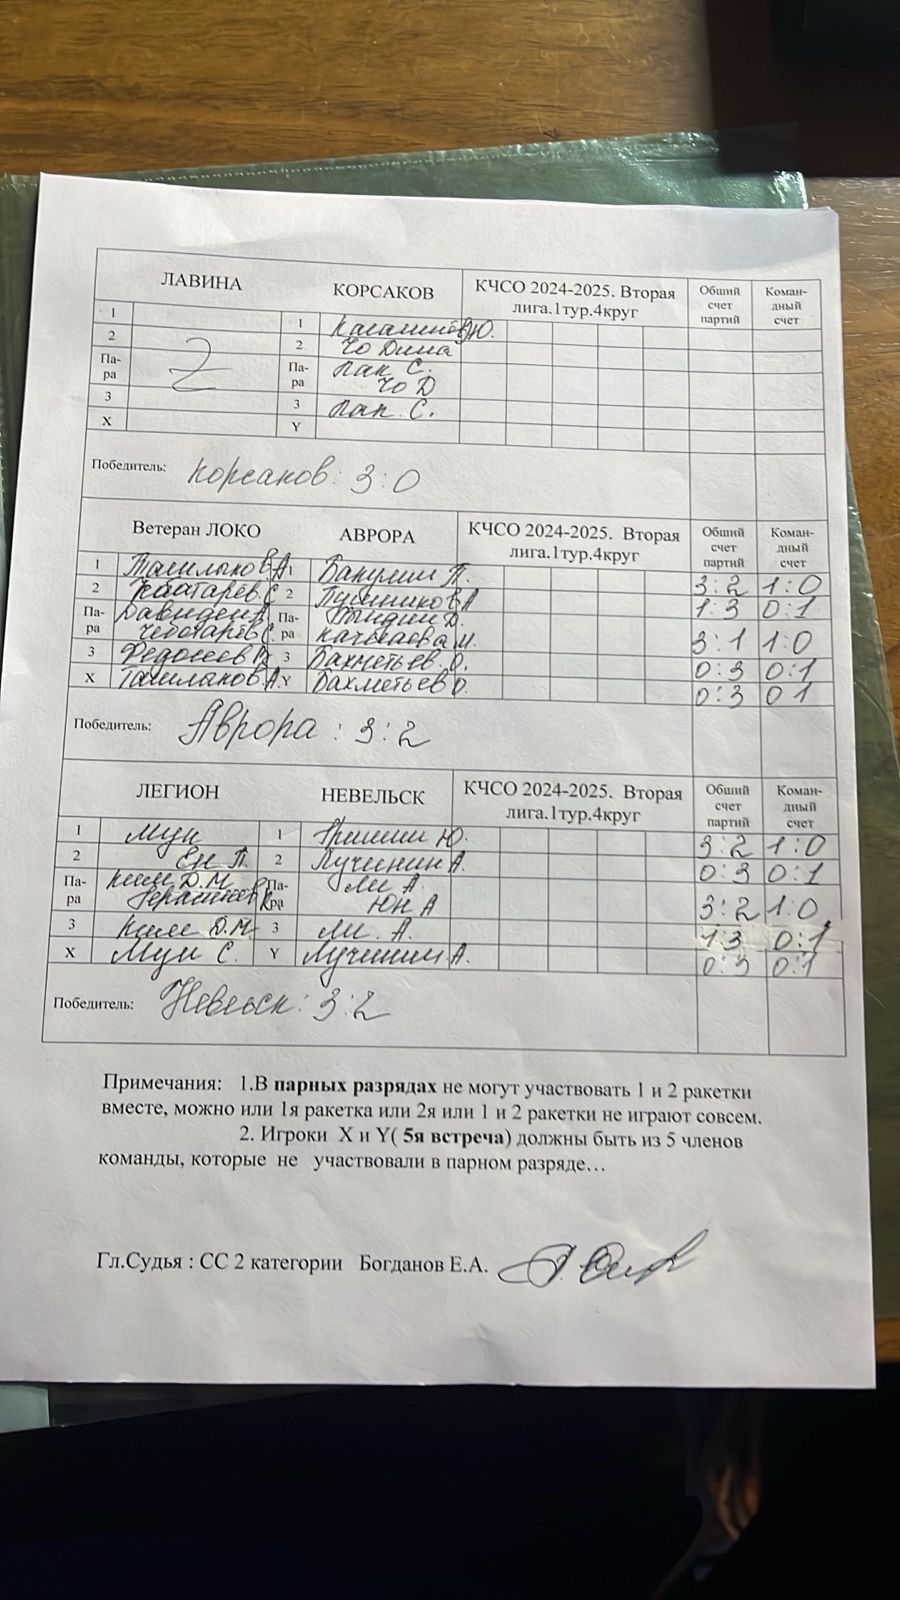 ЛАВИНА КОРСАКОВ КЧСО 2024-2025. Вторая лига.1тур.4круг Общий счет партий Коман-дный счет
1 1 Ю.
2 2 Чо Дима
Па-ра Па-ра Пак С.
Чо Д
3 3 Пак С.
X Y
Победитель: Корсаков: 3:0
Ветеран ЛОКО АВРОРА КЧСО 2024-2025. Вторая лига.1тур.4круг Общий счет партий Коман-дный счет
1 А. 1 Бакулин П. 3:2 1:0
2 С 2 А 1:3 0:1
Па-ра Па-ра 3:1 1:0
3 Федосеев 3 Бахметьев О. 0:3 0:1
X А. Y Бахметьев О. 0:3 01
Победитель: Аврора: 3:2
ЛЕГИОН НЕВЕЛЬСК КЧСО 2024-2025. Вторая лига.1тур.4круг Общий счет партий Коман-дный счет
1 Мун 1 Гришин Ю. 3:2 1:0
2 Ен П. 2 Лучинин А. 0:3 0:1
Па-ра Ким Д.М. Па-ра Ли А.
Юн А 3:2 1:0
3 Ким Д.М. 3 Ли. А. 1:3 0:1
X Мун С. Y Лучинин А. 0:3 0:1
Победитель: Невельск: 3:2
Примечания: 1.В парных разрядах не могут участвовать 1 и 2 ракетки
вместе, можно или 1я ракетка или 2я или 1 и 2 ракетки не играют совсем.
2. Игроки X и Y( 5я встреча) должны быть из 5 членов
команды, которые не участвовали в парном разряде…
Гл.Судья : СС 2 категории Богданов Е.А.